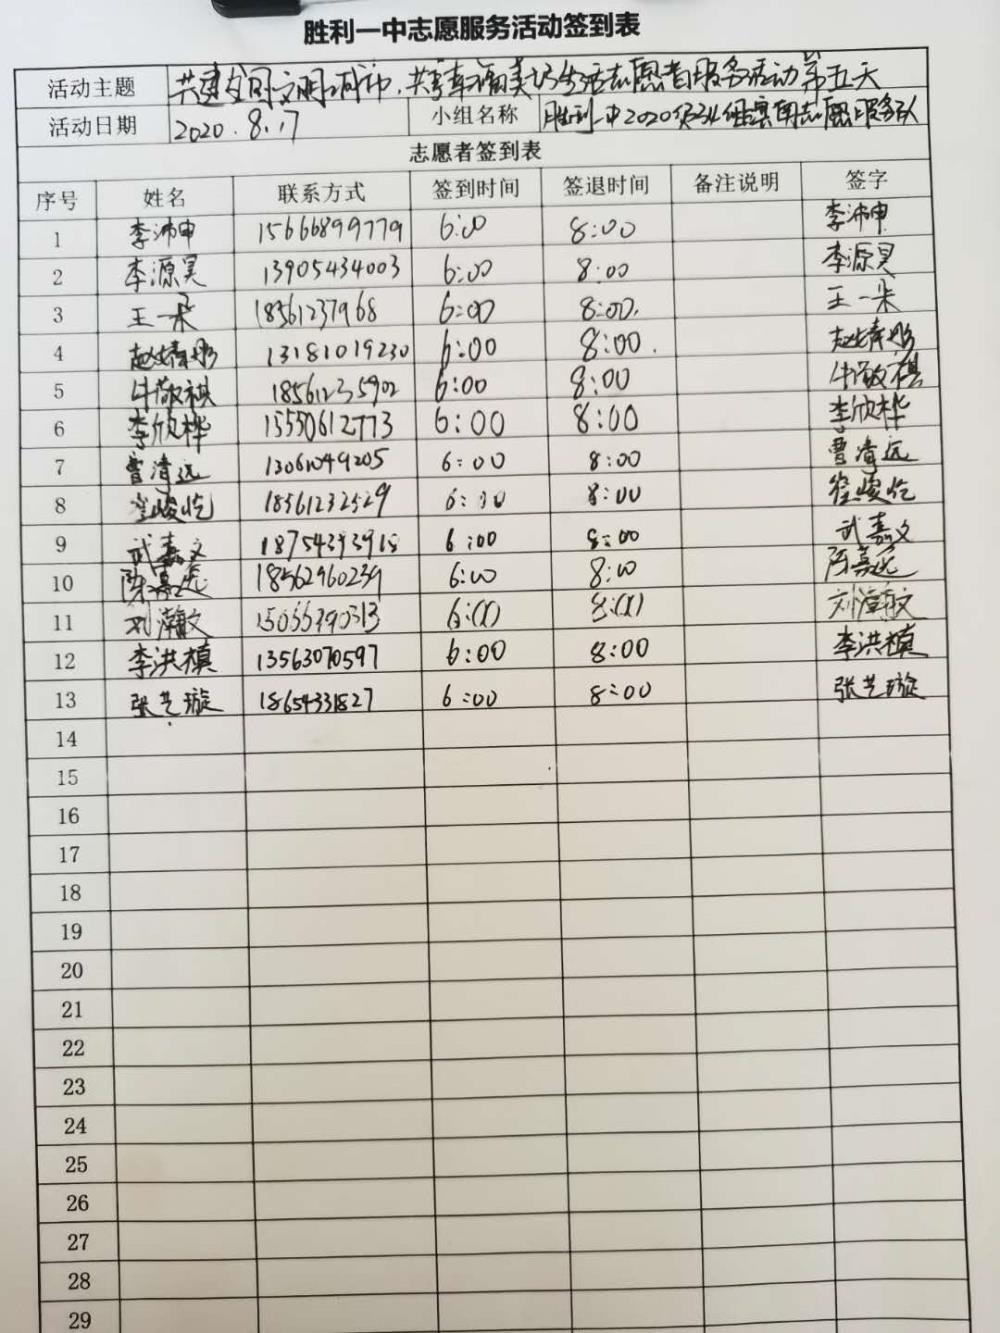 胜利一中志愿服务活动签到表
活动主题 共建全国文明城市,共享幸福美好生活志愿者服务活动第五天
活动日期 2020.8.17 小组名称 胜利一中2020级34班 志愿服务队
志愿者签到表
序号 姓名 联系方式 签到时间 签退时间 备注说明 签字
1 李沛申 15666899779 6:00 8:00 李沛申
2 李源昊 13905434003 6:00 8:00 李源昊
3 王一朵 18561237968 6:00 8:00. 王一朵
4 赵婧彤 13181019230 6:00 8:00. 赵婧彤
5 牛敬祺 18561235902 6:00 8:00 牛敬祺
6 李欣桦 15550612773 6:00 8:00 李欣桦
7 曹清远 13061049205 6:00 8:00 曹清远
8 崔峻屹 18561232529 6:30 8:00 崔峻屹
9 武嘉文 18754393915 6:00 8:00 武嘉文
10 陈嘉远 18562960239 6:00 8:00 陈嘉远
11 刘瀚文 6:00 8:00 刘瀚文
12 李洪槙 13563070597 6:00 8:00 李洪槙
13 张艺璇 18654331827 6:00 8:00 张艺璇
14
15
16
17
18
19
20
21
22
23
24
25
26
27
28
29